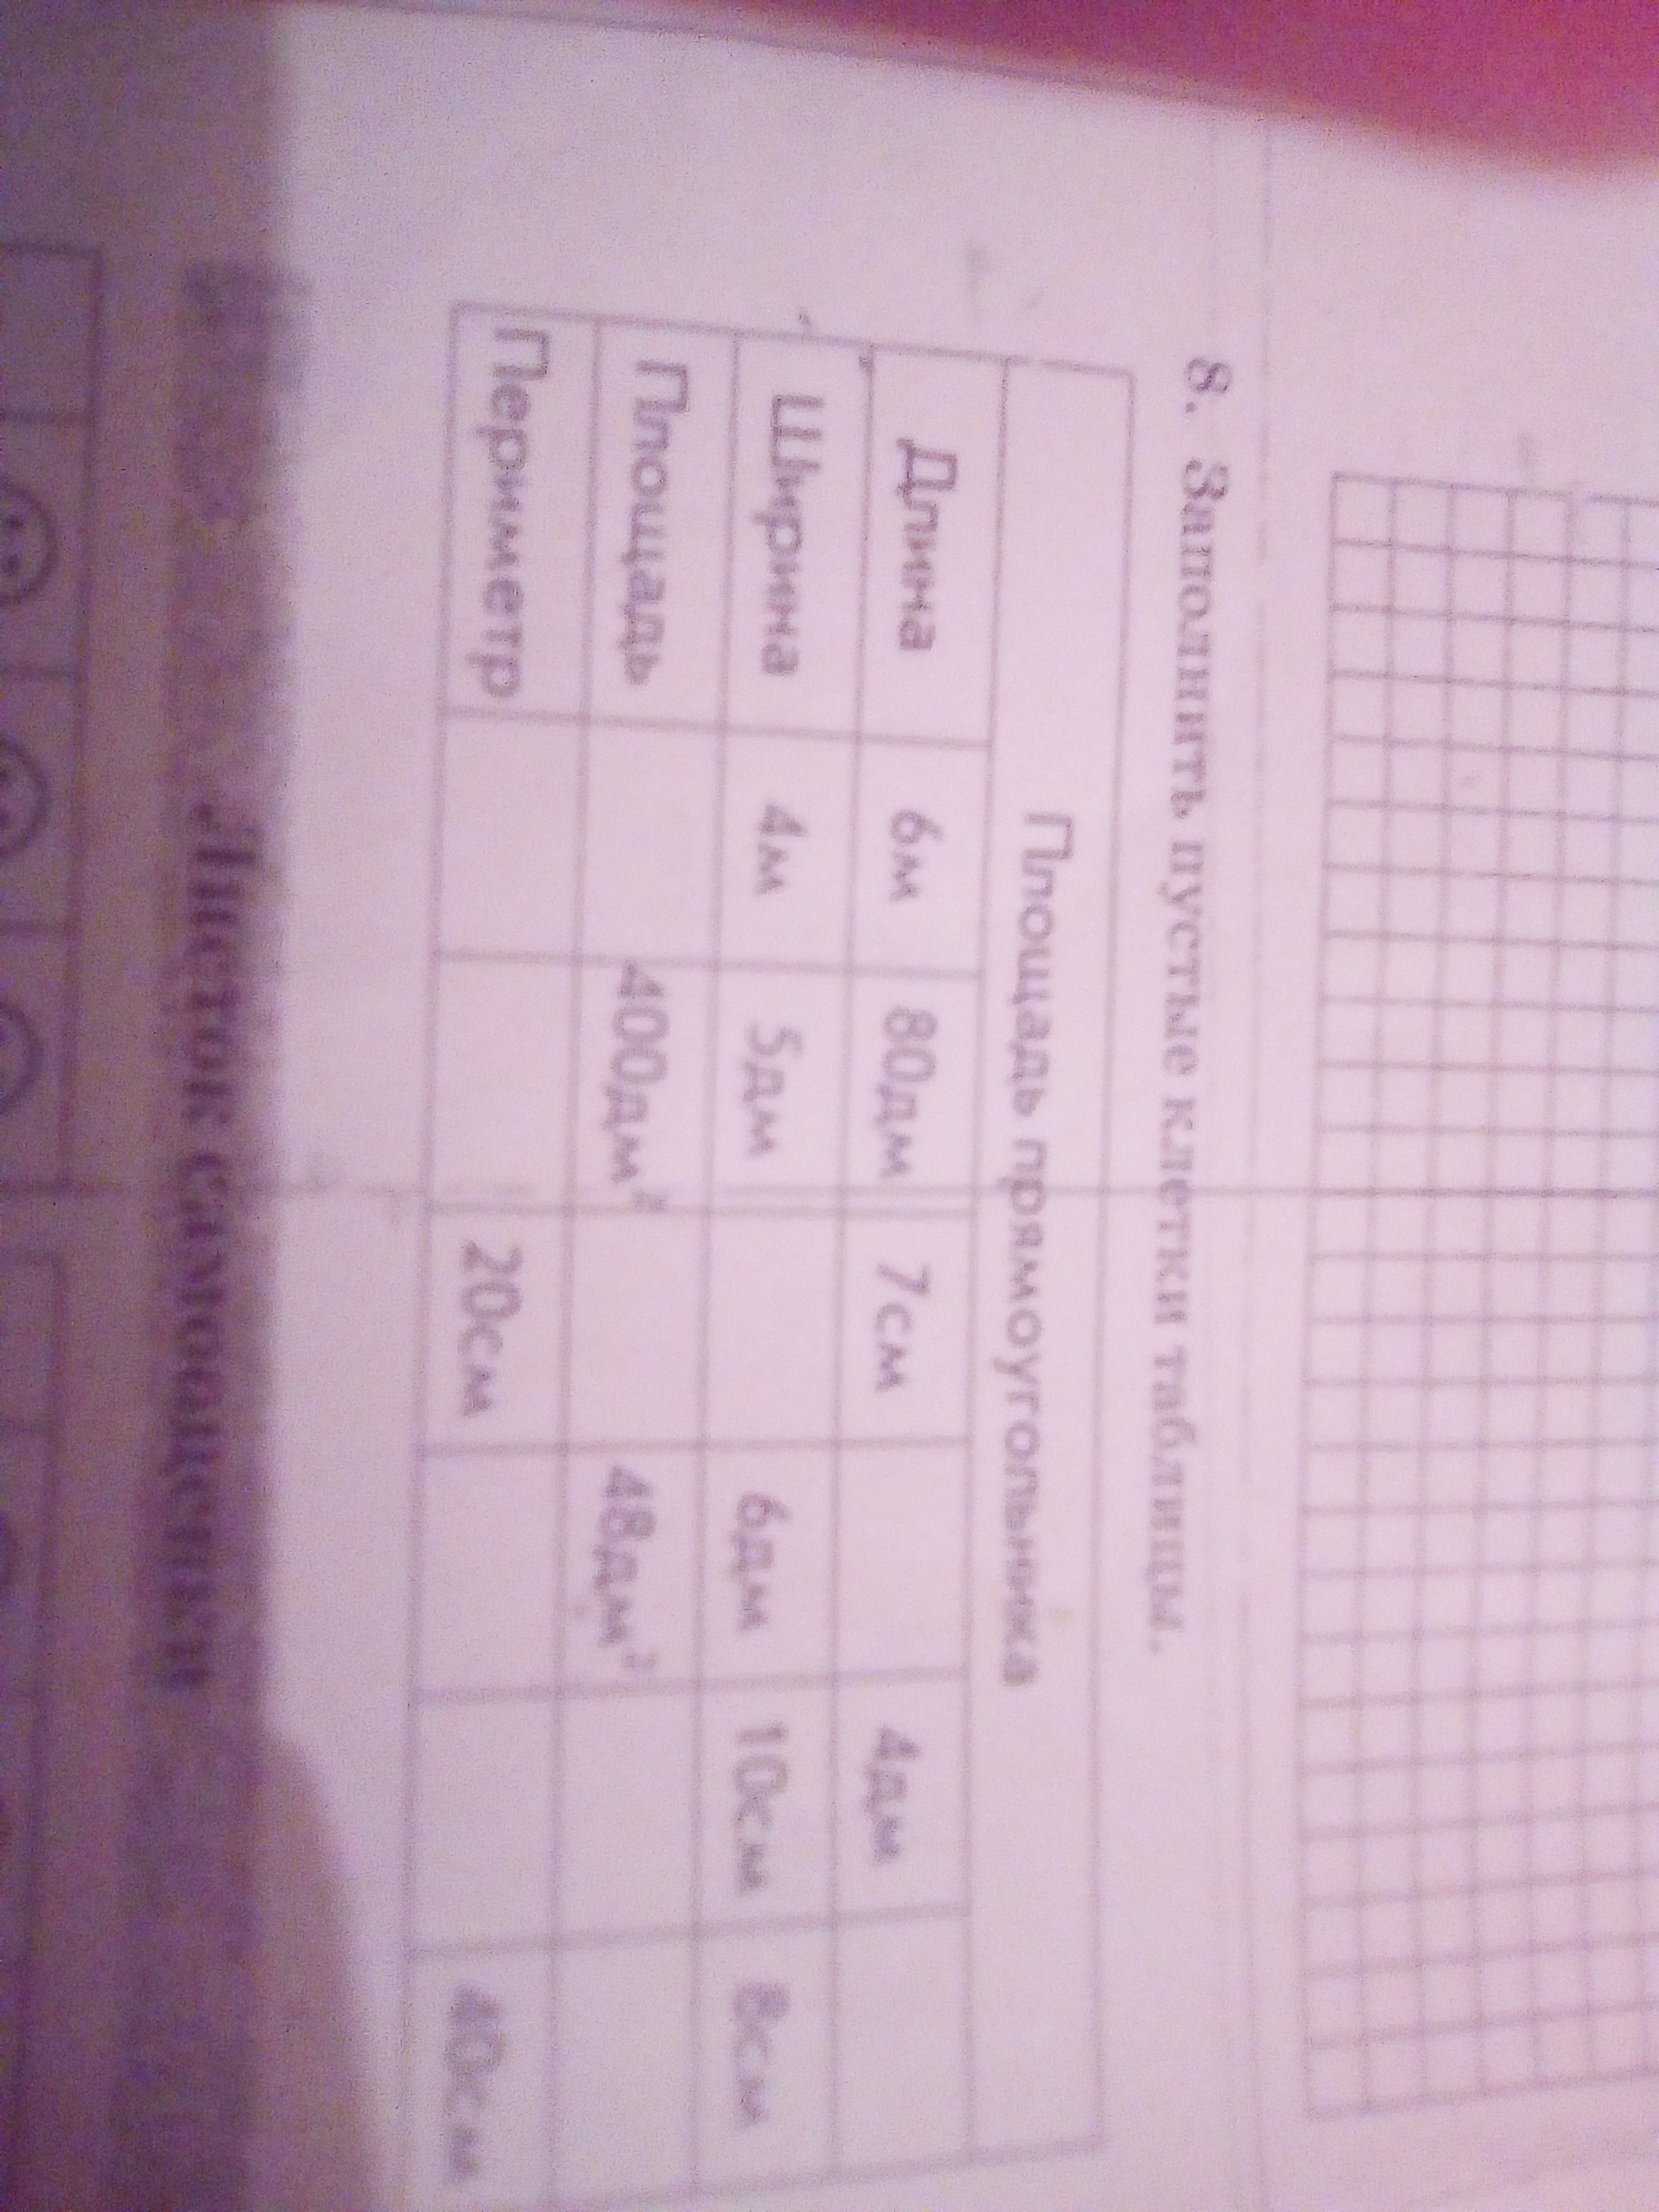 8. Заполнить пустые клетки таблицы.
Площадь прямоугольника
Длина 6м 80дм 7см 4дм
Ширина 4м 5дм 6дм 10см 8см
Площадь 400дм² 48дм²
Периметр 20см 40см
Листок самооценки